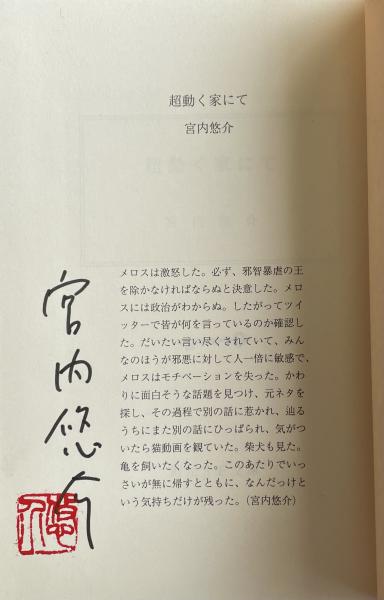 超動く家にて
宮内悠介
メロスは激怒した。必ず、邪智暴虐の王
を除かなければならぬと決意した。メロ
スには政治がわからぬ。したがってツイ
ッターで皆が何を言っているのか確認し
た。だいたい言い尽くされていて、みん
なのほうが邪悪に対して人一倍に敏感で、
メロスはモチベーションを失った。かわ
りに面白そうな話題を見つけ、元ネタを
探し、その過程で別の話に惹かれ、辿る
うちにまた別の話にひっぱられ、気がつ
いたら猫動画を観ていた。柴犬も見た。
亀を飼いたくなった。このあたりでいっ
さいが無に帰すとともに、なんだっけと
いう気持ちだけが残った。(宮内悠介)
宮内悠介